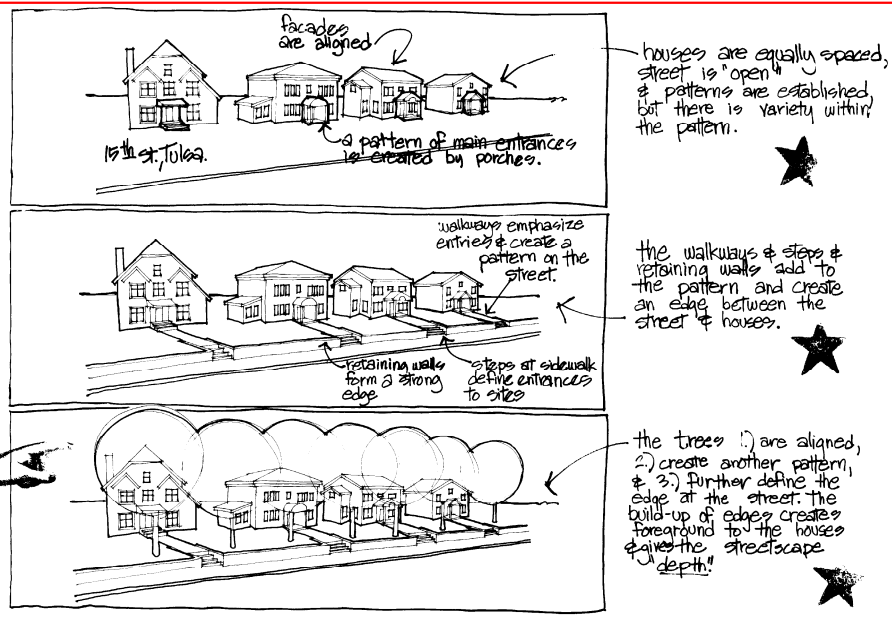 facades
are aligned
15th St., Tulsa.
a pattern of main entrances
is created by porches.
houses are equally spaced,
street is "open"
& patterns are established,
but there is variety within
the pattern.
walkways emphasize
entries & create a
pattern on the
street.
retaining walls
form a strong
edge
steps at sidewalk
define entrances
to sites
the walkways & steps &
retaining walls add to
the pattern and create
an edge between the
street & houses.
the trees 1.) are aligned,
2.) create another pattern,
& 3.) further define the
edge at the street. The
build-up of edges creates
foreground to the houses
& gives the streetscape
"depth."